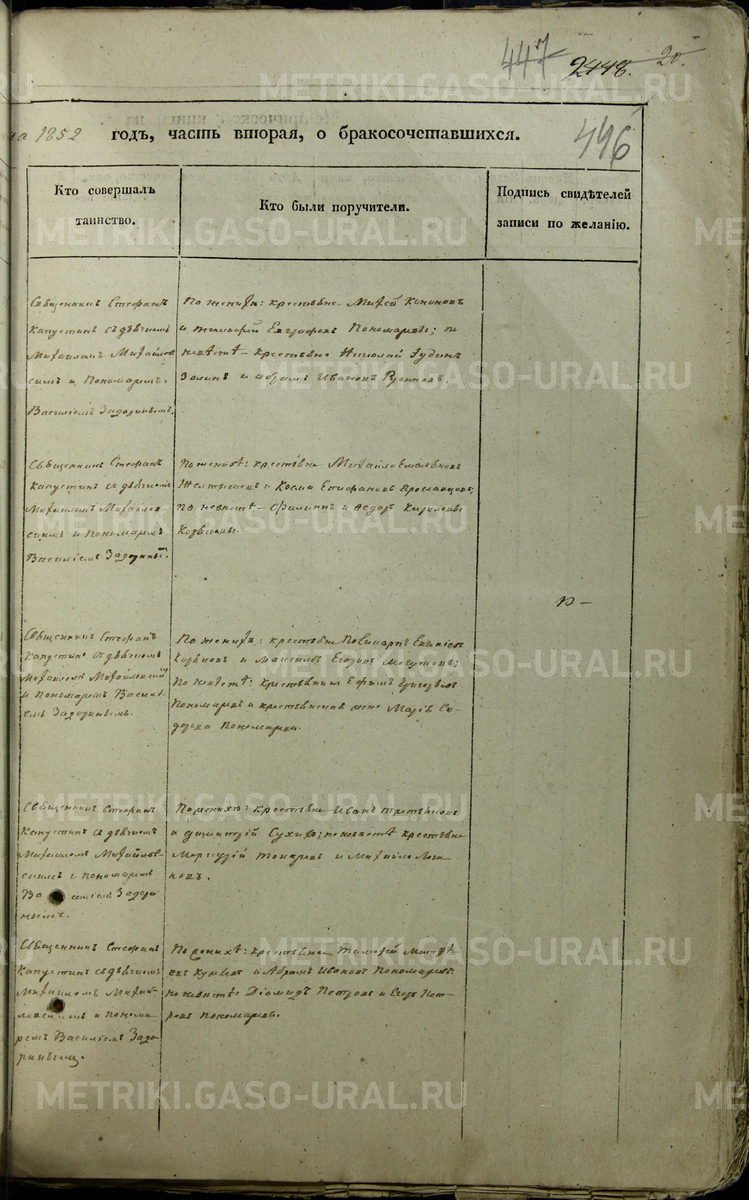 447 2448. 20.
496
на 1852 годъ, часть вторая, о бракосочетавшихся.
Кто совершалъ
таинство.
Кто были поручители.
Подпись свидѣтелей
записи по желанію.
Священникъ Стефанъ
Капустинъ съ дьячкомъ
Михаиломъ Михайлов
скимъ и Пономаремъ
Василіемъ Задоринымъ.
По женихѣ: крестьяне Мокей Кононовъ
и Тимофей Евграфовъ Пономаревы; по
невѣстѣ – крестьяне Николай
и Абрамъ Ивановъ
Священникъ Стефанъ
Капустинъ съ дьячкомъ
Михаиломъ Михайлов
скимъ и пономаремъ
Василіемъ Задоринымъ.
По женихѣ: крестьяне Михайло Емельяновъ
и Косма Епифановъ Ярославцовъ;
по невѣстѣ – Филиппъ и Федоръ Кириловы
Священникъ Стефанъ
Капустинъ съ дьячкомъ
Михаиломъ Михайловскимъ
и пономаремъ Васил
емъ Задоринымъ.
По женихѣ: крестьяне
и Максимъ Егоровъ
По невѣстѣ: крестьянинъ Ефимъ Григорьевъ
Пономаревъ и крестьянская жена Марія Си
дорова Пономарева.
Священникъ Стефанъ
Капустинъ съ дьячкомъ
Михаиломъ Михайлов
скимъ и пономаремъ
Василіемъ Задори
нымъ.
По женихѣ: крестьяне Иванъ
и Димитрій Сухихъ; по невѣстѣ крестьяне
Меркурій Токаревъ и Михайло Логи
новъ.
Священникъ Стефанъ
Капустинъ съ дьячкомъ
Михаиломъ Михай
ловскимъ и понома
ремъ Василіемъ Задо
ринымъ.
По женихѣ: крестьяне Тимофей Матвѣ
евъ и Абрамъ Ивановъ Пономаревъ
по невѣстѣ: Діомидъ Петровъ и Егоръ Пет
ровъ Пономаревы.
METRIKI.GASO-URAL.RU